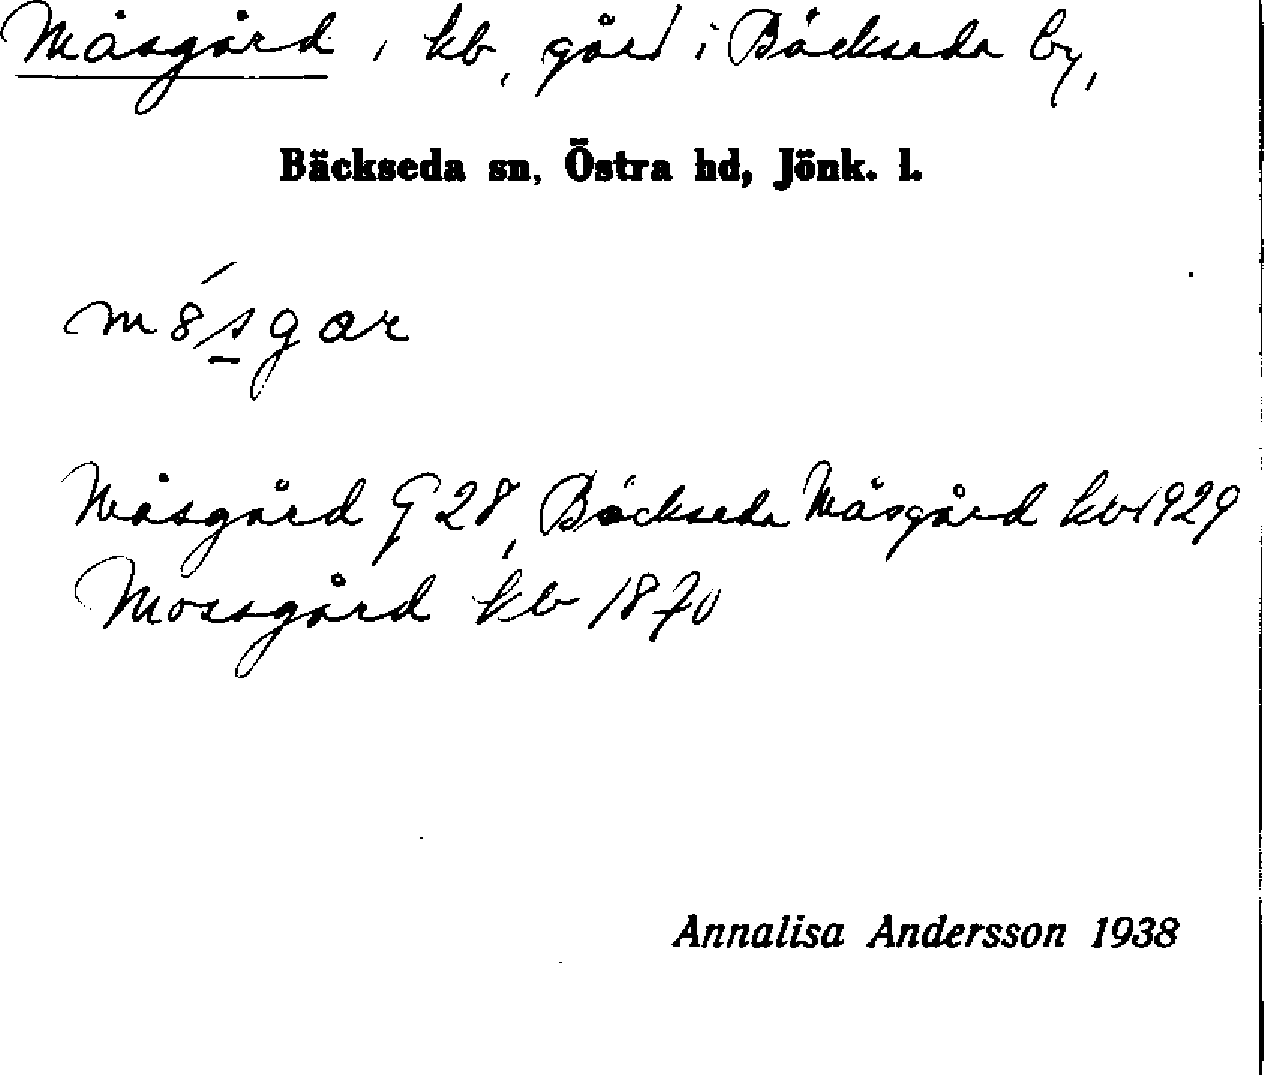 Måsgård, kb, gård i Bäckseda by,
Bäckseda sn, Östra hd, Jönk. l.
Måsgård G 28, Bäckseda Måsgård kv 1929
Mossgård kb 1870
Annalisa Andersson 1938